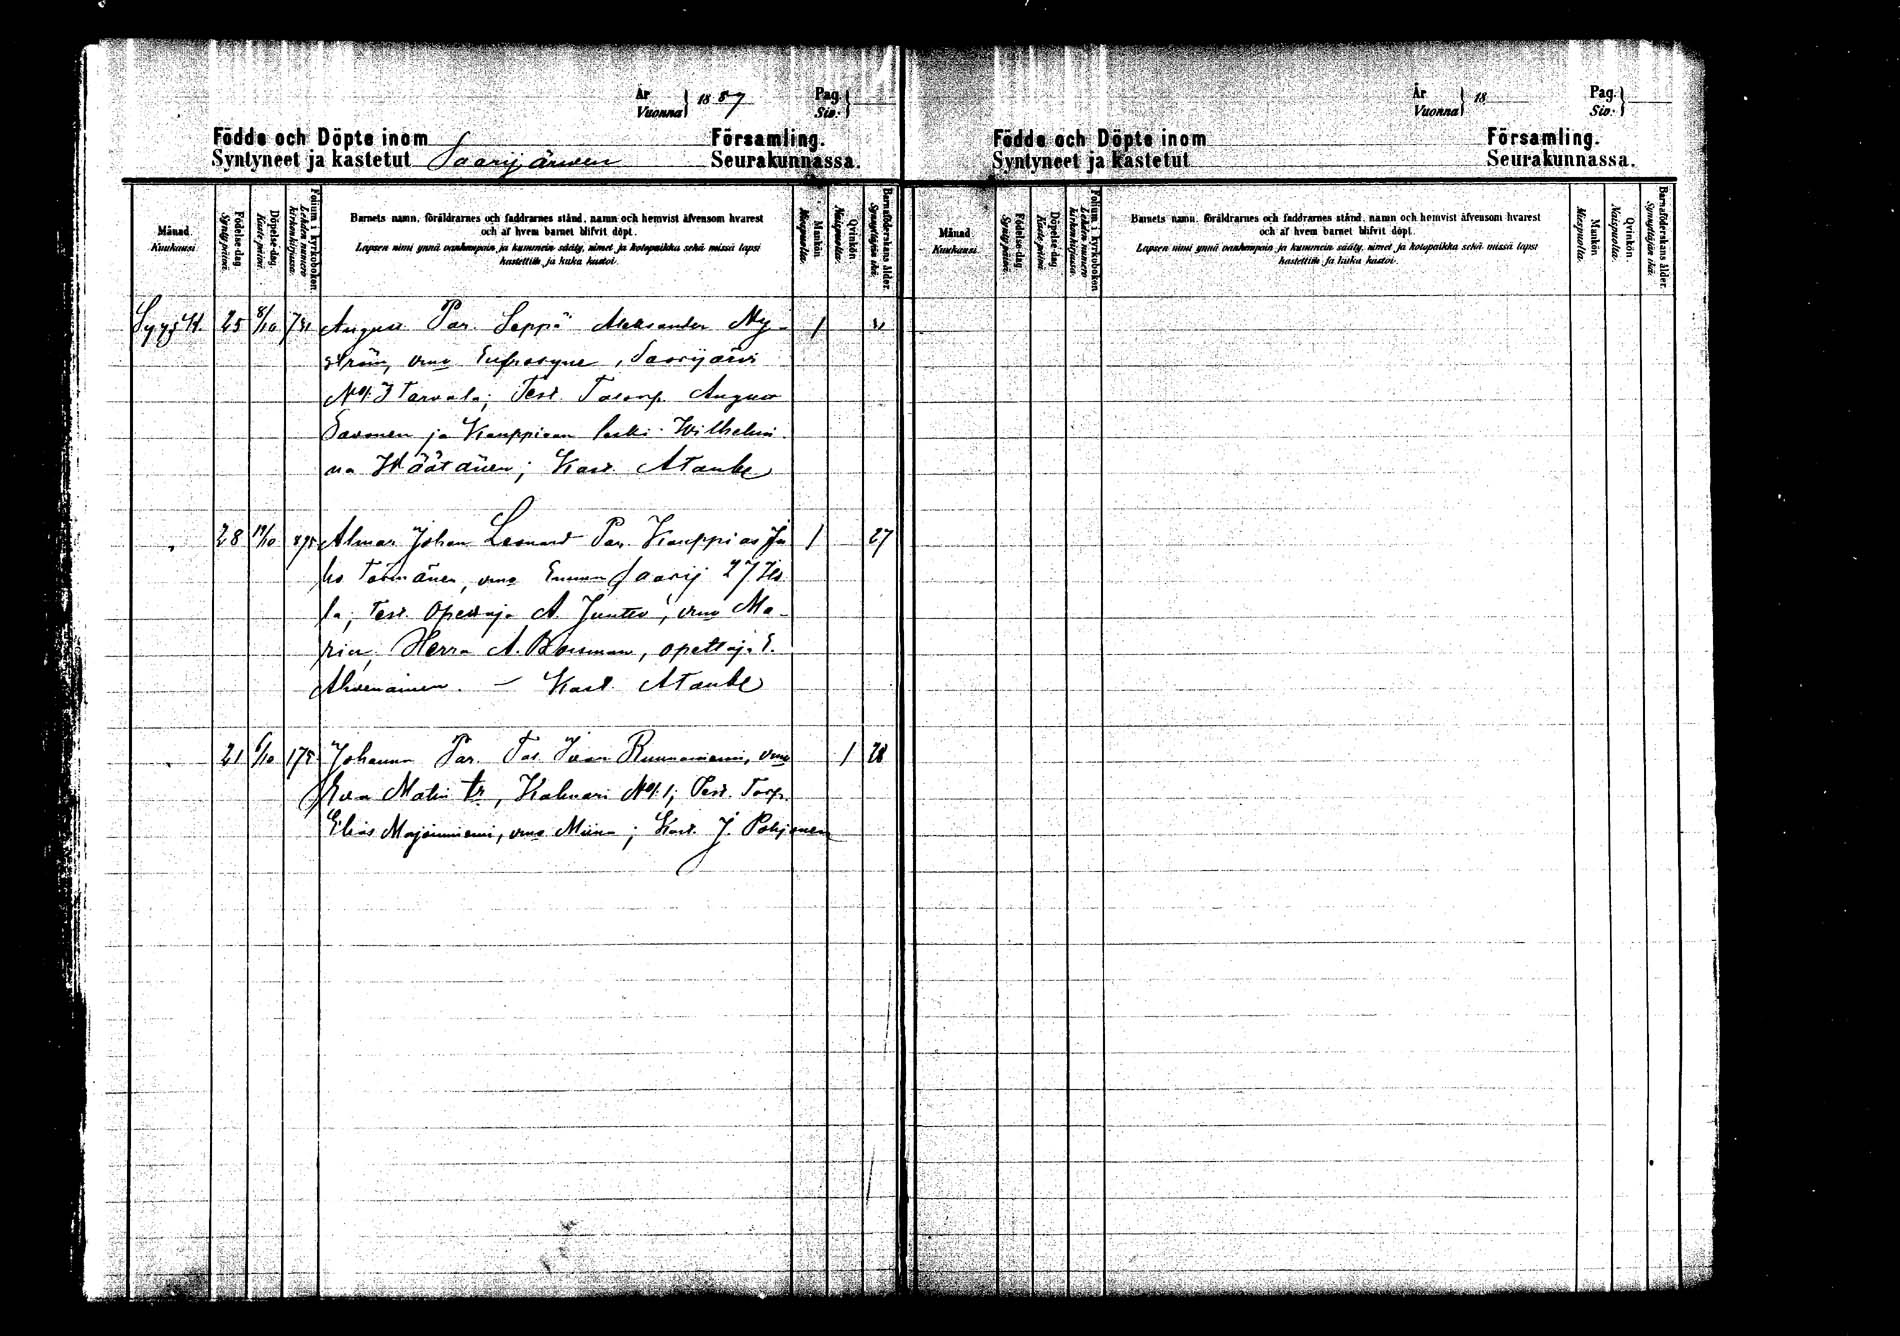 År
Vuonna } 1887
Pag.
Siv. }
Födde och Döpte inom Församling.
Syntyneet ja kastetut Saarijärwen Seurakunnassa.
Månad.
Kuukausi
Födelse-dag.
Synty-päivä.
Döpelse-dag.
Kaste-päivä.
Folium i kyrkoboken.
Lehden numero kirkonkirjassa.
Barnets namn, föräldrarnes och faddrarnes stånd, namn och hemvist äfvensom hvarest
och af hvem barnet blifvit döpt.
Lapsen nimi ynnä vanhempain ja kummein sääty, nimet ja kotopaikka sekä missä lapsi
kastettiin ja kuka kastoi.
Mankön.
Miespuolia.
Qvinkön.
Naispuolia.
Barnaföderskans ålder.
Synnyttäjän ikä.
Syysk. 25 8/10 731 August Van. Seppä Aleksander Ny- 1
ström, vmo Eufrosyne, Saarijärvi
No 7 Tarvala; Test. Talonp. August
Savonen ja Kauppiaan leski Wilhelmi
na Häätänen; Kast. A Taube
" 28 19/10 895 Almar Johan Leonard Van. Kauppias Ju 1 27
ho Törmänen, vmo Emma Saarij 27
la; Test. Opettaja A. Junten, vmo Ma-
ria, Herra A. opettaja E.
Ahvenainen. — Kast. A Taube
" 21 6/10 175 Johanna Van. Ivar vmo 1 28
Eva Malin tr, Kalmari No 1; Test. Torp.
Elias Majaniemi, vmo Miina; Kast. J. Pohjonen
År
Vuonna } 18
Pag.
Siv. }
Födde och Döpte inom Församling.
Syntyneet ja kastetut Seurakunnassa.
Månad
Kuukausi
Födelse-dag.
Synty-päivä.
Döpelse-dag.
Kaste-päivä.
Folium i kyrkoboken
Lehden numero kirkonkirjassa.
Barnets namn, föräldrarnes och faddrarnes stånd, namn och hemvist äfvensom hvarest
och af hvem barnet blifvit döpt.
Lapsen nimi ynnä vanhempain ja kummein sääty, nimet ja kotopaikka sekä missä lapsi
kastettiin ja kuka kastoi.
Mankön
Miespuolia.
Qvinkön.
Naispuolia.
Barnaföderskans ålder.
Synnyttäjän ikä.